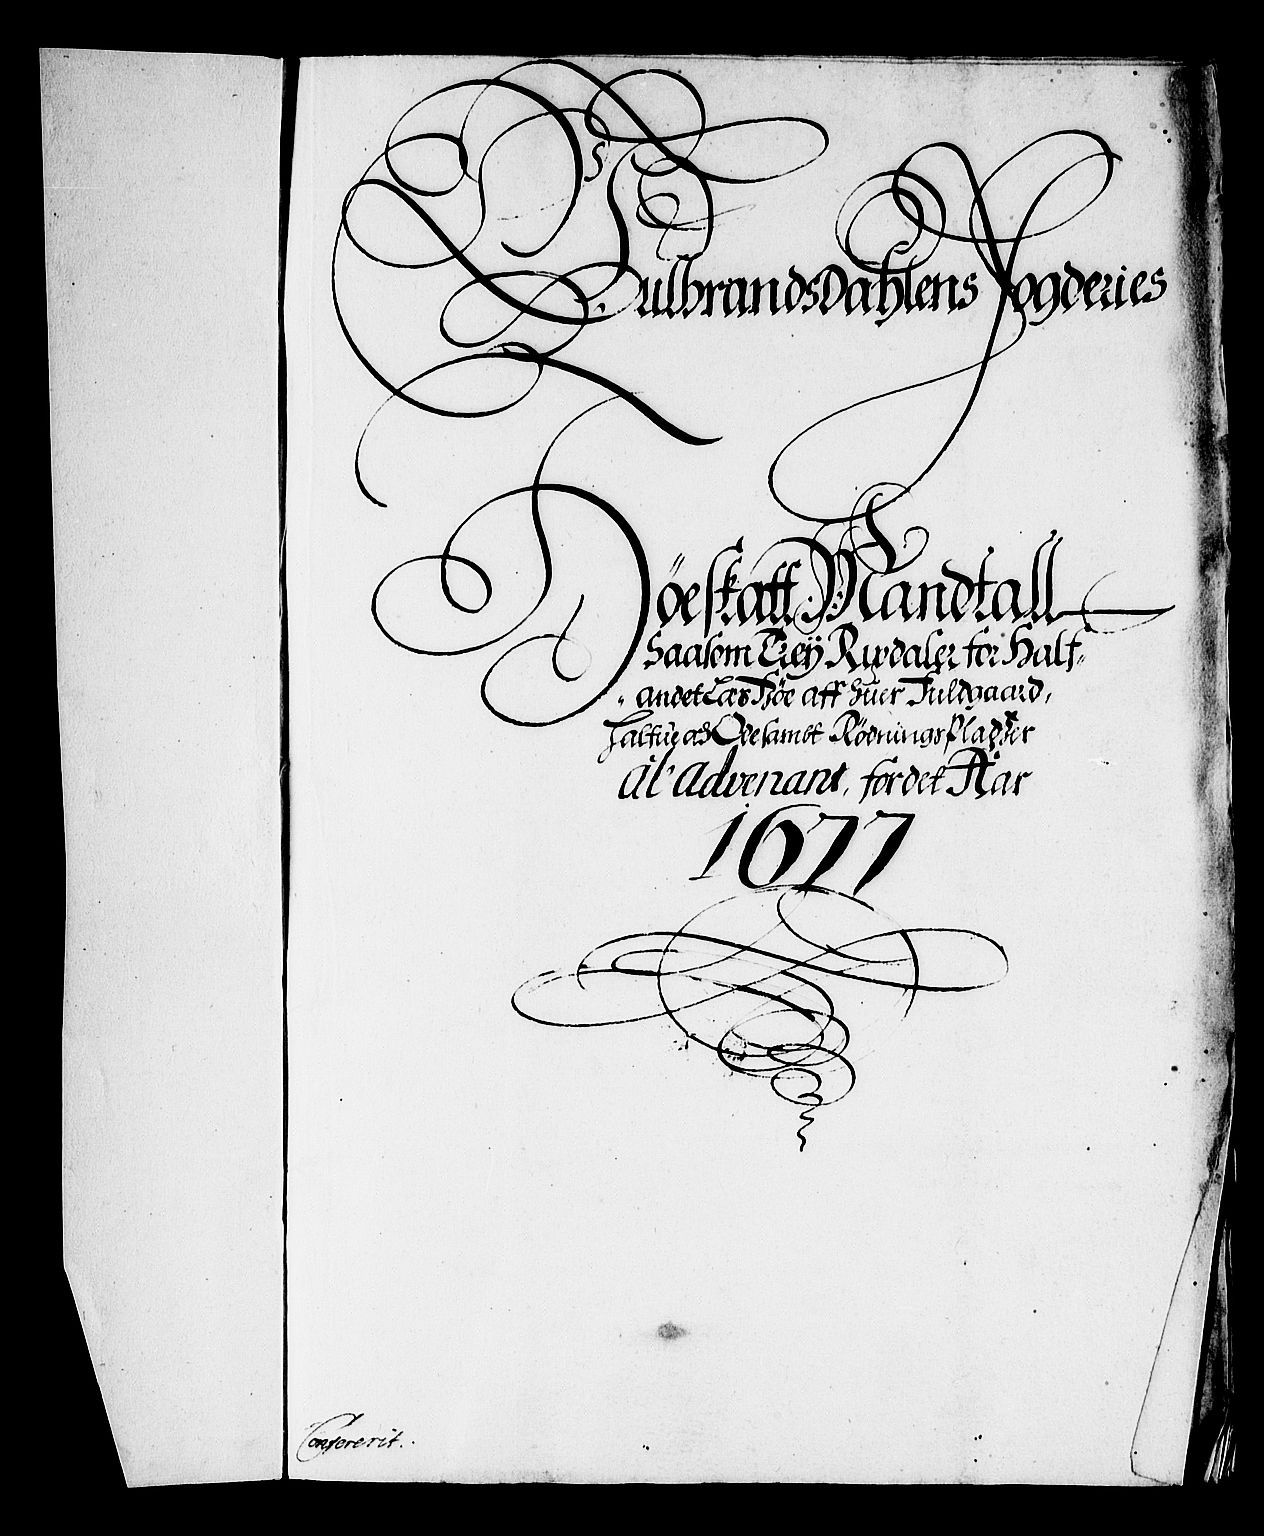 GulbrandsDahlens Fogderies
Höeskatt Mandtall
Saasom Trey Rixdaler for Half-
andet Læs Höe aff huer Fuldgaard,
Halfue och Öde sambt Rödnings Pladzer
al' advenant, for det Aar
1677
Confererit.